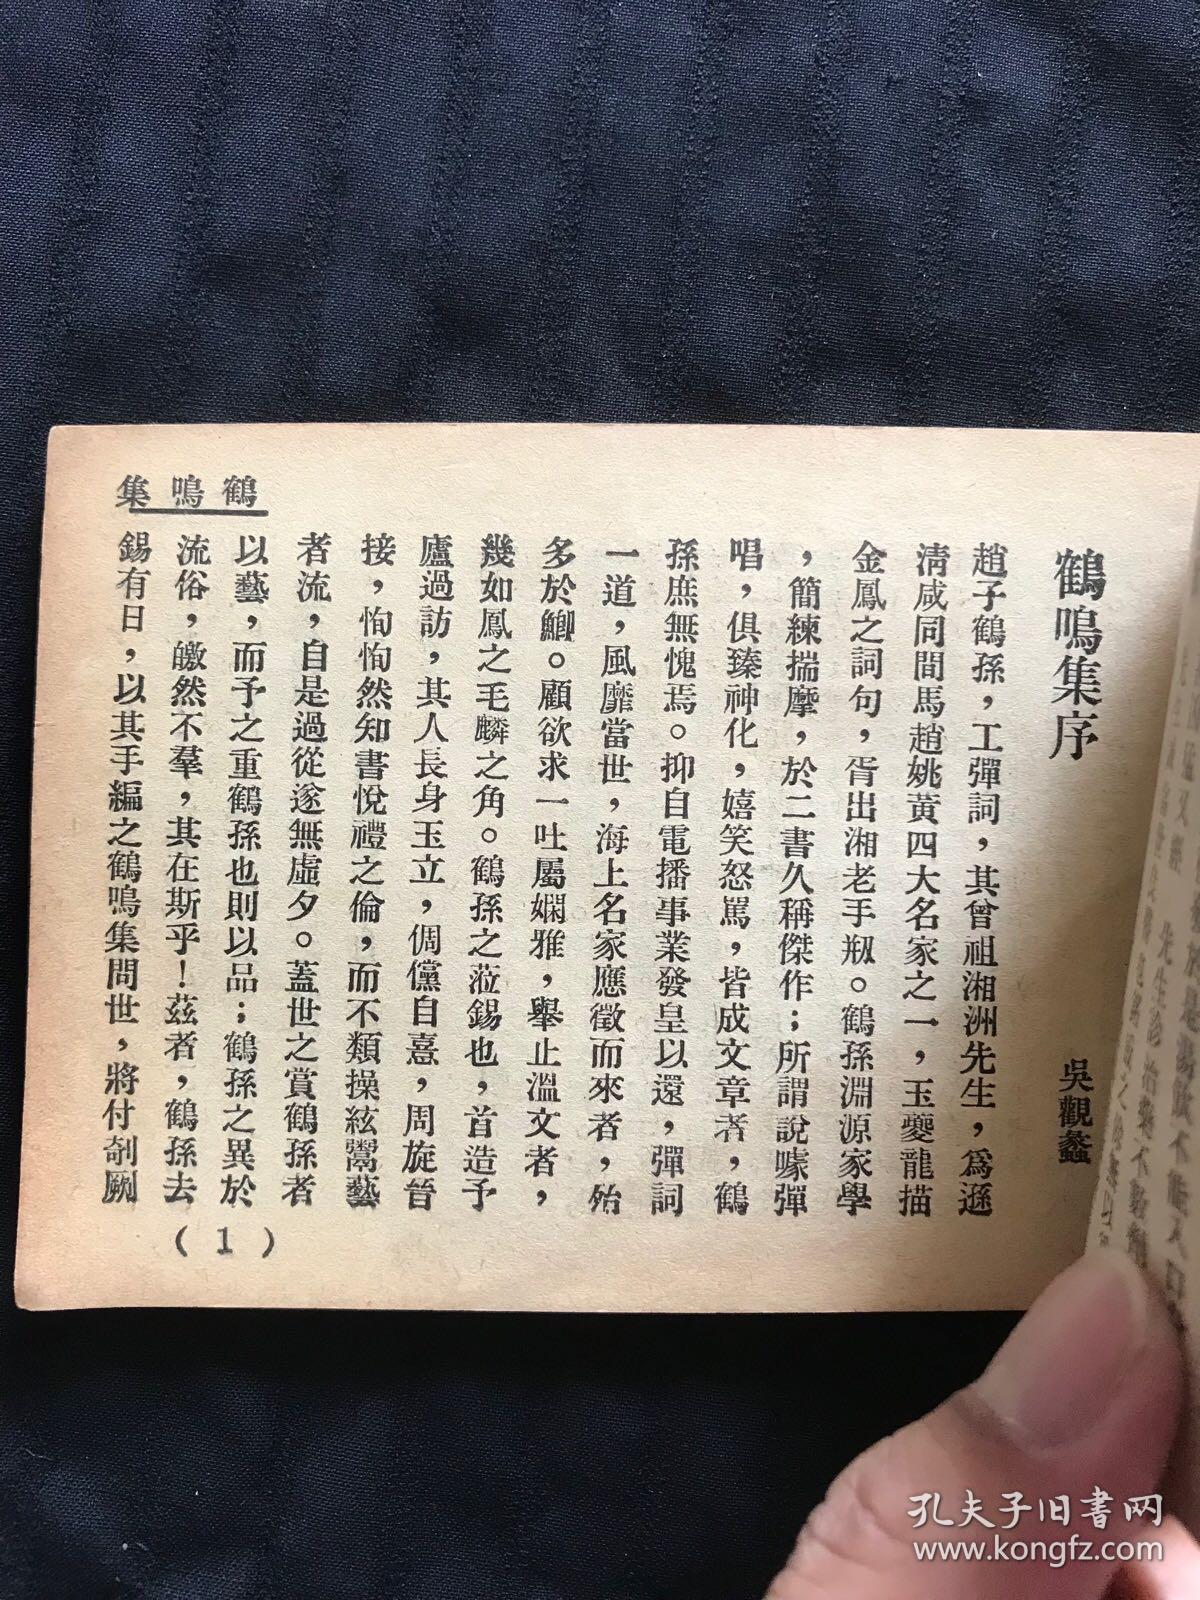 鶴鳴集序
吳觀蠡
趙子鶴孫，工彈詞，其曾祖湘洲先生，爲遜
淸咸同間馬趙姚黃四大名家之一，玉夔龍描
金鳳之詞句，胥出湘老手剏。鶴孫淵源家學
，簡練揣摩，於二書久稱傑作；所謂說噱彈
唱，俱臻神化，嬉笑怒罵，皆成文章者，鶴
孫庶無愧焉。抑自電播事業發皇以還，彈詞
一道，風靡當世，海上名家應徵而來者，殆
多於鯽。顧欲求一吐屬嫻雅，擧止溫文者，
幾如鳳之毛麟之角。鶴孫之蒞錫也，首造予
廬過訪，其人長身玉立，倜儻自憙，周旋晉
接，恂恂然知書悅禮之倫，而不類操絃鬻藝
者流，自是過從遂無虛夕。蓋世之賞鶴孫者
以藝，而予之重鶴孫也則以品；鶴孫之異於
流俗，皦然不羣，其在斯乎！茲者，鶴孫去
錫有日，以其手編之鶴鳴集問世，將付剞劂
鶴鳴集
（1）
孔夫子旧书网
www.kongfz.com